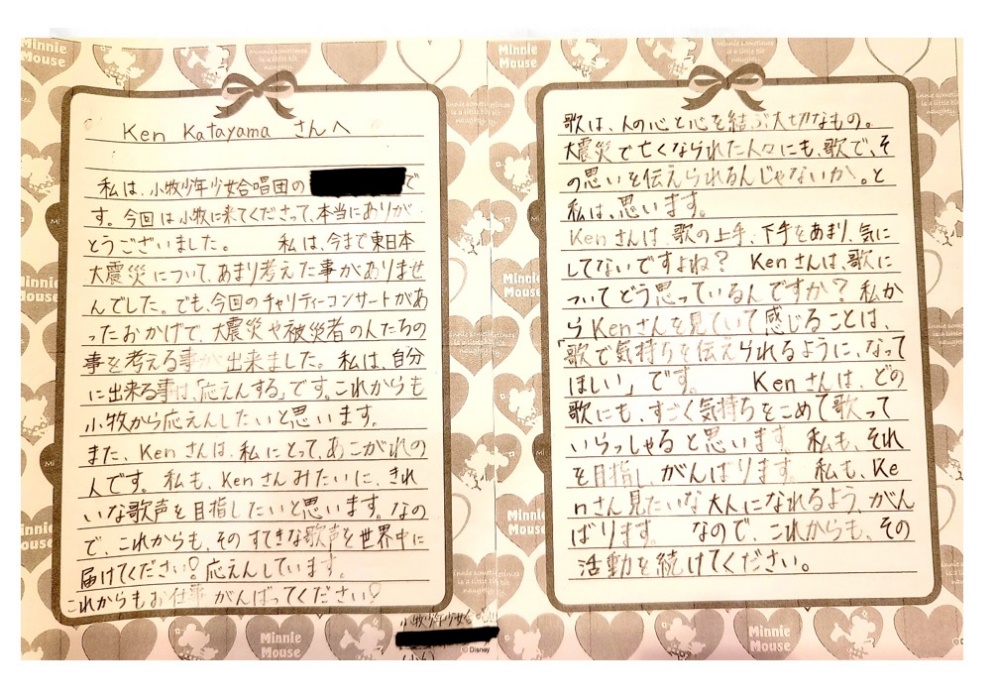 Ken Katayama さんへ
私は、小牧少年少女合唱団の で
す。今回は小牧に来てくださって、本当にありが
とうございました。 私は、今まで東日本
大震災について、あまり考えた事がありませ
んでした。でも、今回のチャリティーコンサートがあ
ったおかげで、大震災や被災者の人たちの
事を考える事が出来ました。私は、自分
に出来る事は、「応えんする」です。これからも
小牧から応えんしたいと思います。
また、Kenさんは、私にとって、あこがれの
人です。私も、Kenさんみたいに、きれ
いな歌声を目指したいと思います。なの
で、これからも、そのすてきな歌声を世界中に
届けてください!応えんしています。
これからもお仕事がんばってください!
小牧少年少女合唱団
© Disney
歌は、人の心と心を結ぶ大切なもの。
大震災で亡くなられた人々にも、歌で、そ
の思いを伝えられるんじゃないか。と
私は、思います。
Kenさんは、歌の上手、下手をあまり、気に
してないですよね? Kenさんは、歌に
ついてどう思っているんですか? 私か
らKenさんを見ていて感じることは、
「歌で気持ちを伝えられるように、なって
ほしい」です。 Kenさんは、どの
歌にも、すごく気持ちをこめて歌って
いらっしゃると思います。私も、それ
を目指し、がんばります。私も、Ke
nさん見たいな大人になれるよう、がん
ばります。 なので、これからも、その
活動を続けてください。
Minnie Mouse
Minnie Mouse
Minnie Mouse
Minnie Mouse